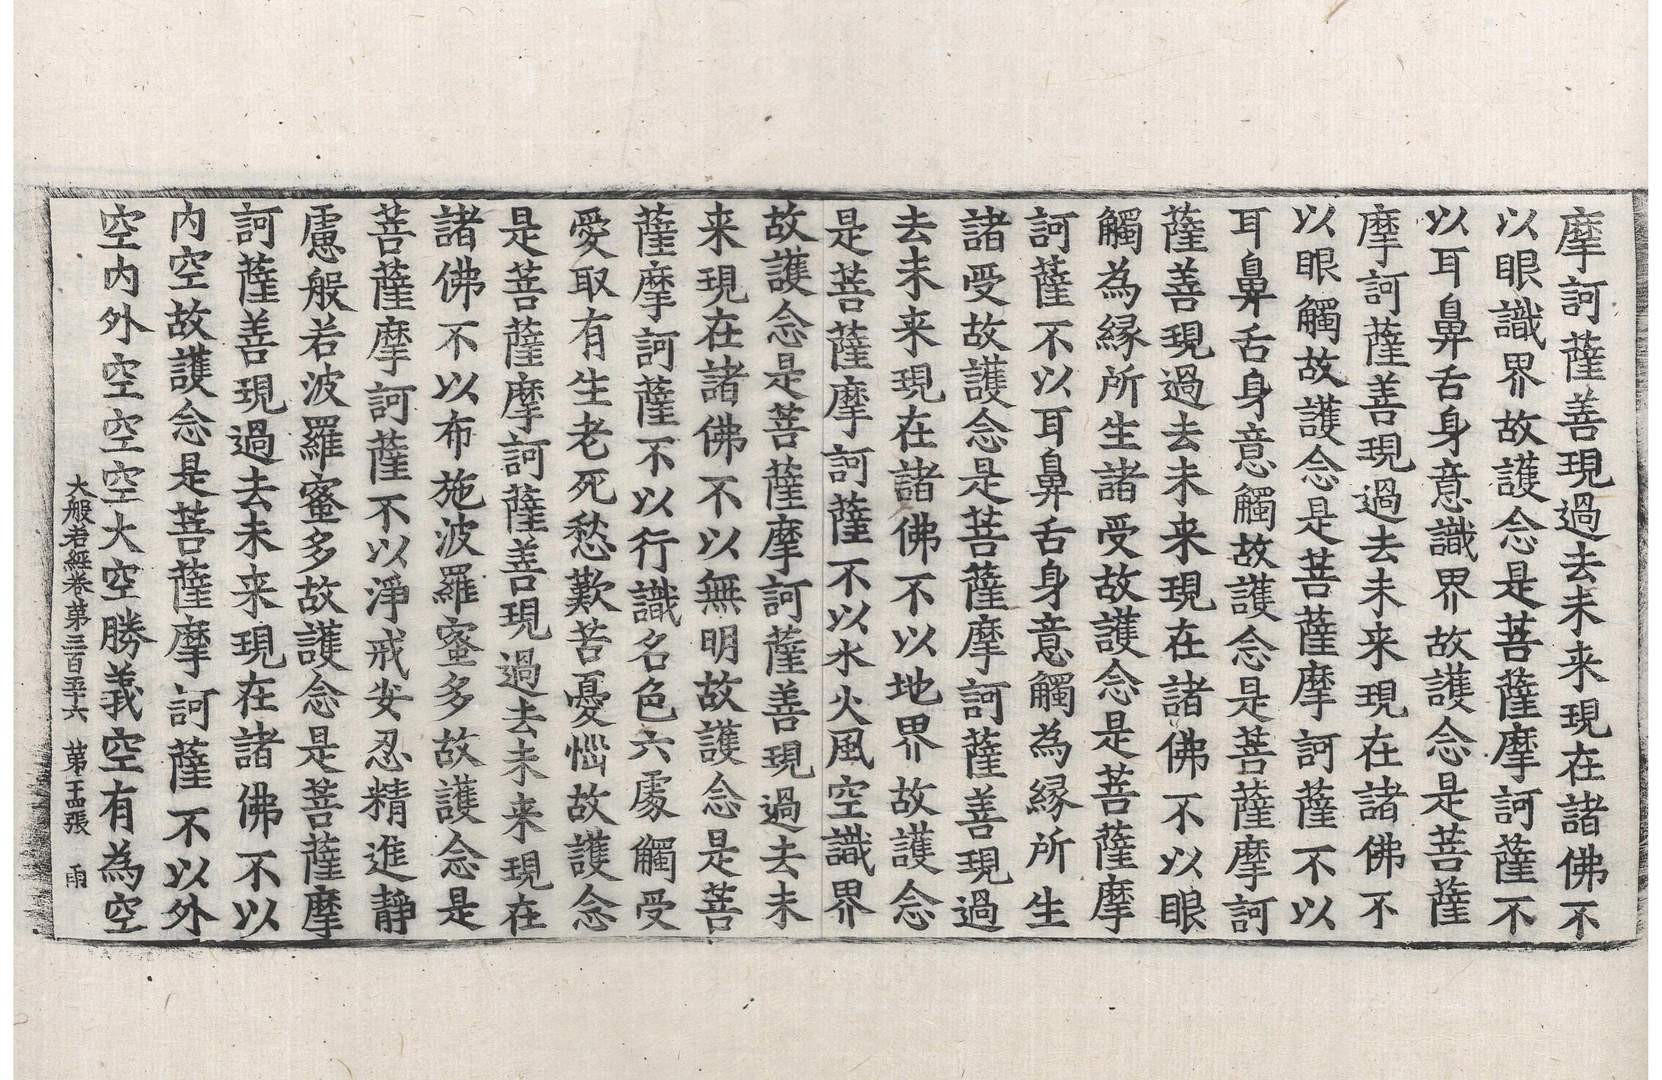 摩訶薩善現過去未来現在諸佛不
以眼識界故護念是菩薩摩訶薩不
以耳鼻舌身意識界故護念是菩薩
摩訶薩善現過去未来現在諸佛不
以眼觸故護念是菩薩摩訶薩不以
耳鼻舌身意觸故護念是菩薩摩訶
薩善現過去未来現在諸佛不以眼
觸為縁所生諸受故護念是菩薩摩
訶薩不以耳鼻舌身意觸為縁所生
諸受故護念是菩薩摩訶薩善現過
去未来現在諸佛不以地界故護念
是菩薩摩訶薩不以水火風空識界
故護念是菩薩摩訶薩善現過去未
来現在諸佛不以無明故護念是菩
薩摩訶薩不以行識名色六處觸受
愛取有生老死愁歎苦憂惱故護念
是菩薩摩訶薩善現過去未来現在
諸佛不以布施波羅蜜多故護念是
菩薩摩訶薩不以淨戒安忍精進靜
慮般若波羅蜜多故護念是菩薩摩
訶薩善現過去未来現在諸佛不以
内空故護念是菩薩摩訶薩不以外
空内外空空空大空勝義空有為空
大般若經卷第三百五十六 第十四張 雨